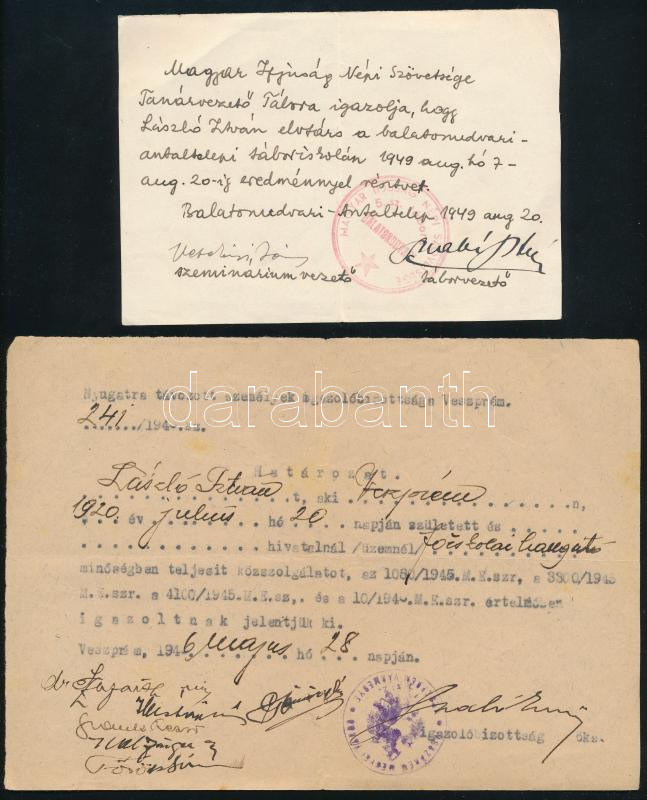 Magyar Ifjúság Népi Szövetsége
Tanárvezető Tábora igazolja, hogy
László István elvtárs a balatonudvari-
antaltelepi táboriskolán 1949 aug. hó 7-
aug. 20-ig eredménnyel résztvett.
Balatonudvari-Antaltelep 1949 aug 20.
szemináriumvezető táborvezető
darabanth
Nyugatra távozott személyek igazolóbizottsága Veszprém.
241/194 .sz.
Határozat.
László István t, aki Veszprém n,
1920. év július hó 20 napján született és
hivatalnál /üzemnél/ főiskolai hallgató
minőségben teljesit közszolgálatot, az 1080/1945.M.E.szr, a 3300/1945
M.E.szr. a 4100/1945.M.E.sz,. és a 10/194 .M.E.szr. értelmében
igazoltnak jelentjük ki.
Veszprém, 1946 május hó 28 napján.
dr
igazolóbizottság